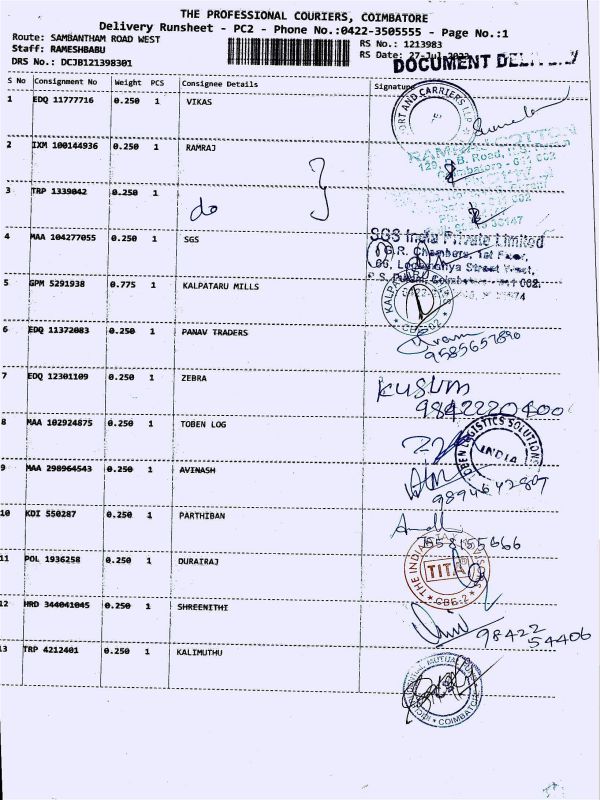 THE PROFESSIONAL COURIERS, COIMBATORE
Delivery Runsheet - PC2 - Phone No.:0422-3505555 - Page No.:1
Route: SAMBANTHAM ROAD WEST
RS No.: 1213983
Staff: RAMESHBABU
RS Date: 27-Jul-2023
DRS No.: DCJB121398301
DOCUMENT
S No Consignment No Weight PCS Consignee Details Signature
1 EDQ 11777716 0.250 1 VIKAS
PORT AND CARRIERS LLP
2 IXM 100144936 0.250 1 RAMRAJ
3 TRP 1339042 0.250 1
do
4 MAA 104277055 0.250 1 SGS
SGS India Private Limited
G.R. Chambers, 1st Floor,
5 GPM 5291938 0.775 1 KALPATARU MILLS
KALPATARU
CBE-2
6 EDQ 11372083 0.250 1 PANAV TRADERS
9585657890
7 EDQ 12301109 0.250 1 ZEBRA
Kusum
9842220400
8 MAA 102924875 0.250 1 TOBEN LOG
LOGISTICS SOLUTIONS
INDIA
9 MAA 298964543 0.250 1 AVINASH
9894642807
10 KDI 550287 0.250 1 PARTHIBAN
11 POL 1936258 0.250 1 DURAIRAJ
THE INDIA
TITA
CBE-2
12 HRD 344041045 0.250 1 SHREENITHI
98422
54406
13 TRP 4212401 0.250 1 KALIMUTHU
MUTUAL
COIMBATORE